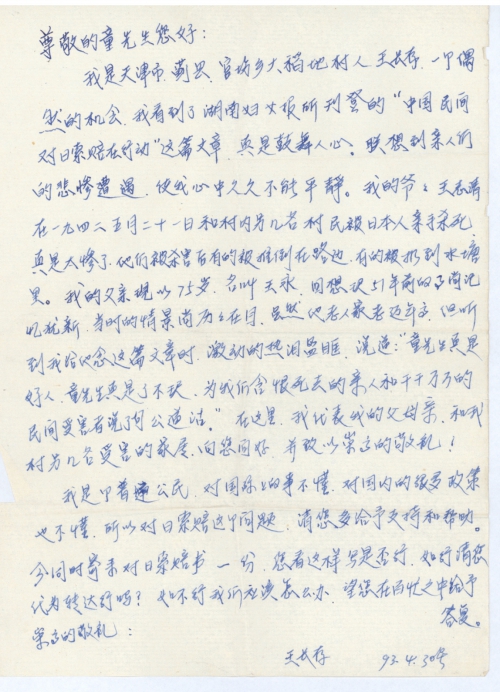 尊敬的童先生您好：
我是天津市蓟县官场乡大稻地村人王长存，一个偶
然的机会，我看到了湖南妇女报所刊登的“中国民间
对日索赔在行动”这篇文章，真是鼓舞人心。联想到亲人们
的悲惨遭遇，使我心中久久不能平静。我的爷々王志
在一九四二五月二十一日和村内另几名村民被日本人亲手杀死，
真是太惨了，他们被杀害后有的被推倒在路边，有的被扔到水塘
里。我的父亲现以75岁，名叫王永，回想起51年前的事尚记
忆犹新，当时的情景尚历历在目，虽然他老人家老迈年高，但听
到我给他念这篇文章时，激动的热泪盈眶，说道：“童先生真是
好人，童先生真是了不起，为我们含恨死去的亲人和千千万万的
民间受害者说了句公道话。”在这里，我代表我的父母亲，和我
村另几名受害的家属，向您问好，并致以崇高的敬礼！
我是个普通公民，对国际上的事不懂，对国内的很多政策
也不懂，所以对日索赔这个问题，请您多给予支持和帮助。
今同时寄来对日索赔书一份，您看这样写是否行，如行请您
代为转达行吗？如不行我们应该怎么办，望您在百忙之中给予
答复。
崇高的敬礼：
王长存 93.4.30号